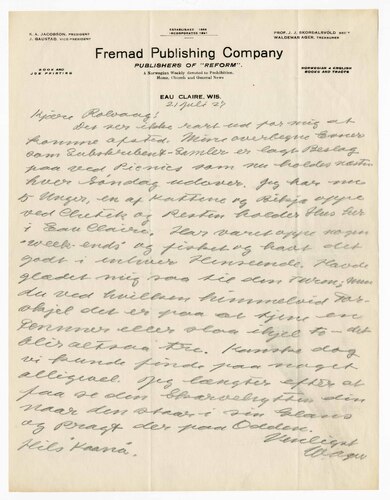 K. A. JACOBSON, PRESIDENT
J. BAUSTAD, VICE-PRESIDENT
ESTABLISHED 1886
INCORPORATED 1897
PROF. J. J. SKORDALSVOLD, SEC'Y
WALDEMAR AGER
Fremad Publishing Company
PUBLISHERS OF "REFORM"
BOOK AND
JOB PRINTING
A Norwegian Weekly devoted to Prohibition,
Home, Church and General News
NORWEGIAN & ENGLISH
BOOKS AND TRACTS
EAU CLAIRE, WIS.
21 Juli 27
Kjære Rolvaag!
Det ser ikke rart ud for mig at
komme afsted. Mine overlegne Evner
som Subskribent-Samler er lagt Beslag
paa ved Picnics som nu holdes næsten
hver Søndag udover. Jeg har nu
5 Unger, en af Kattene og Bikja oppe
ved Chetek og Resten holder Hus her
i Eau Claire. Har været oppe nogen
"week-ends" og fisket og havt det
godt i enhver Henseende. Havde
glædet mig saa til den Turen, men
du ved hvilken himmelvid For-
skjel det er paa at tjene en
eller slaa ihjel to - det
blir altsaa tre. Kanske dog
vi kunde finde paa noget
alligevel. Jeg længter efter at
faa se den Skarvehytten din
naar den staar i sin Glans
og Pragt der paa Odden.
Venligst
Ager
Hils Kaana.